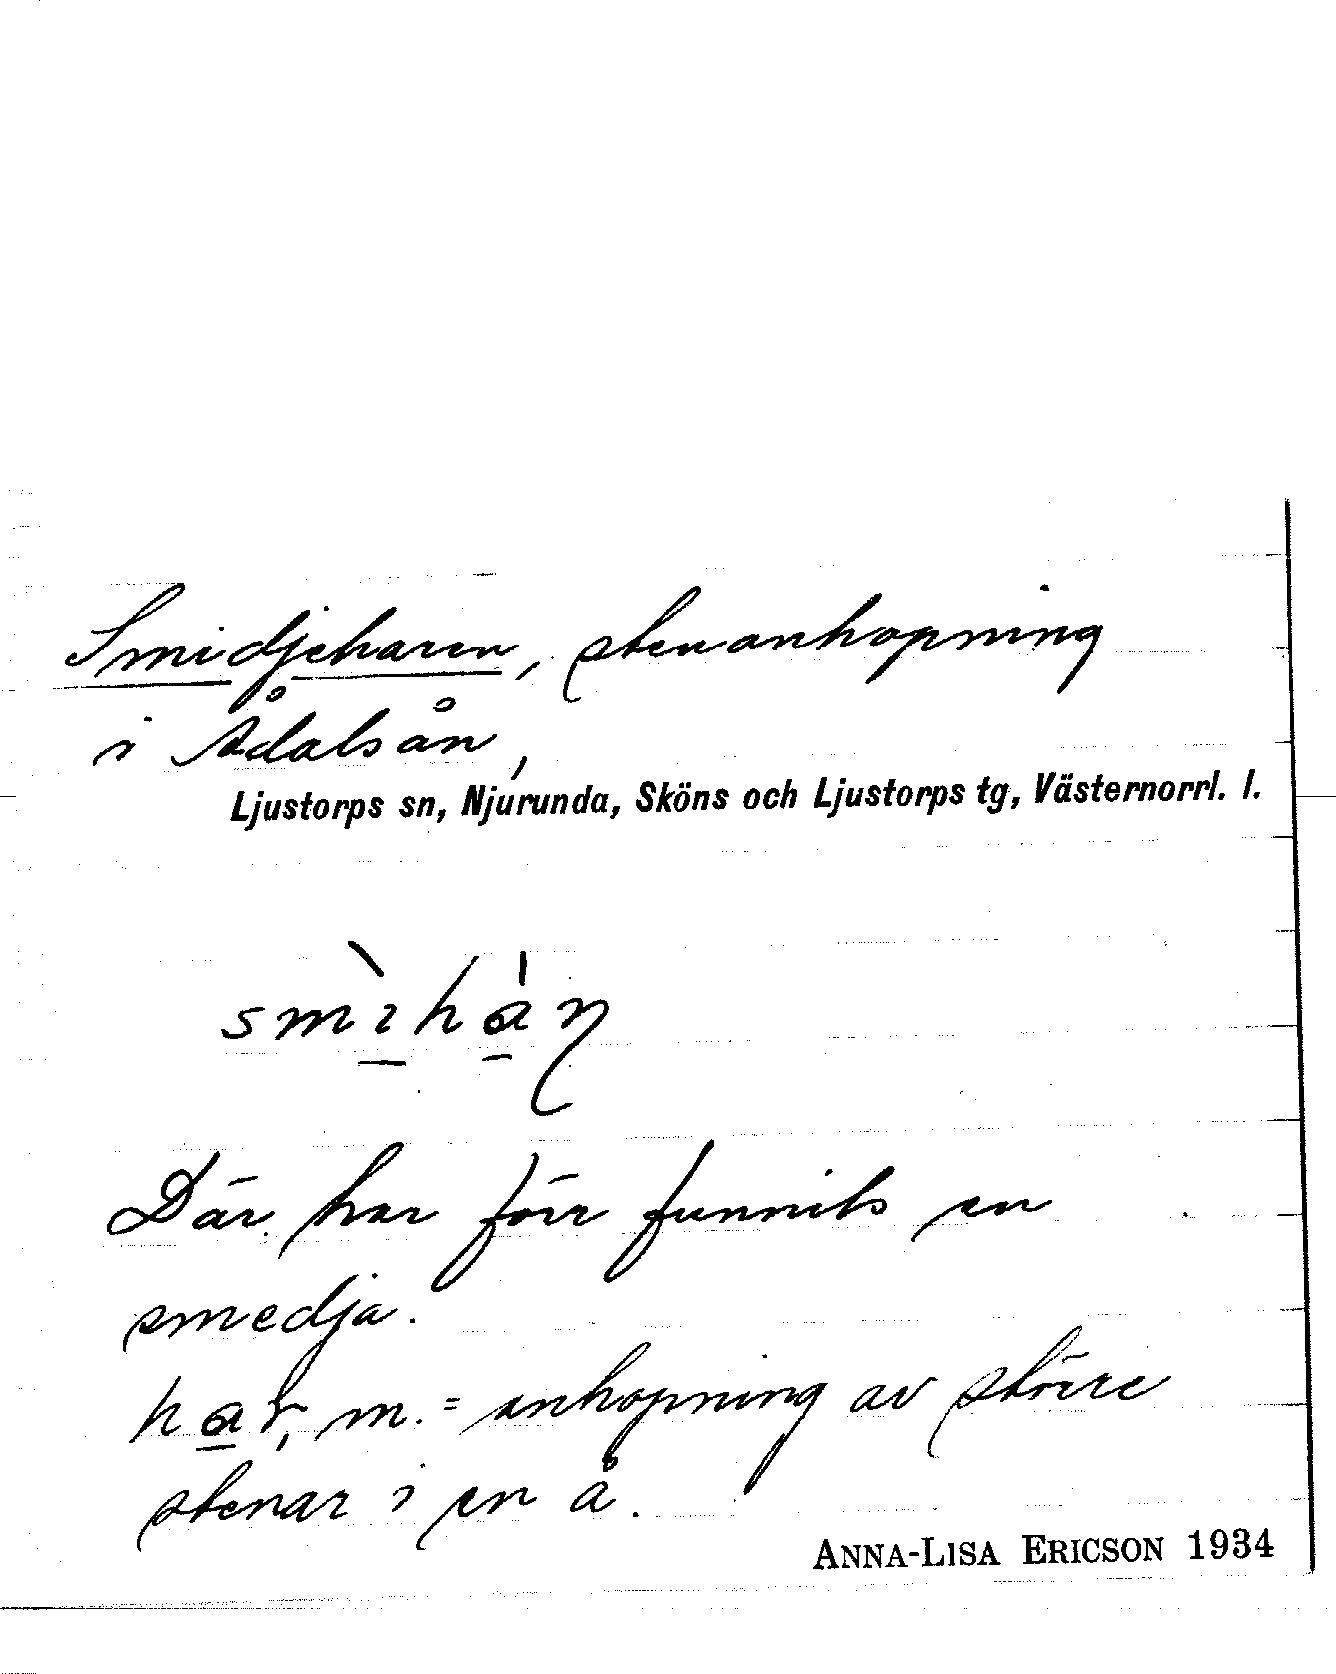 Smidjeharen, stenanhopning
i Ådalsån,
Ljustorps sn, Njurunda, Sköns och Ljustorps tg, Västernorrl. l.
smìhàn
Där har förr funnits en
smedja.
har, m. = anhopning av större
stenar i en å.
ANNA-LISA ERICSON 1934